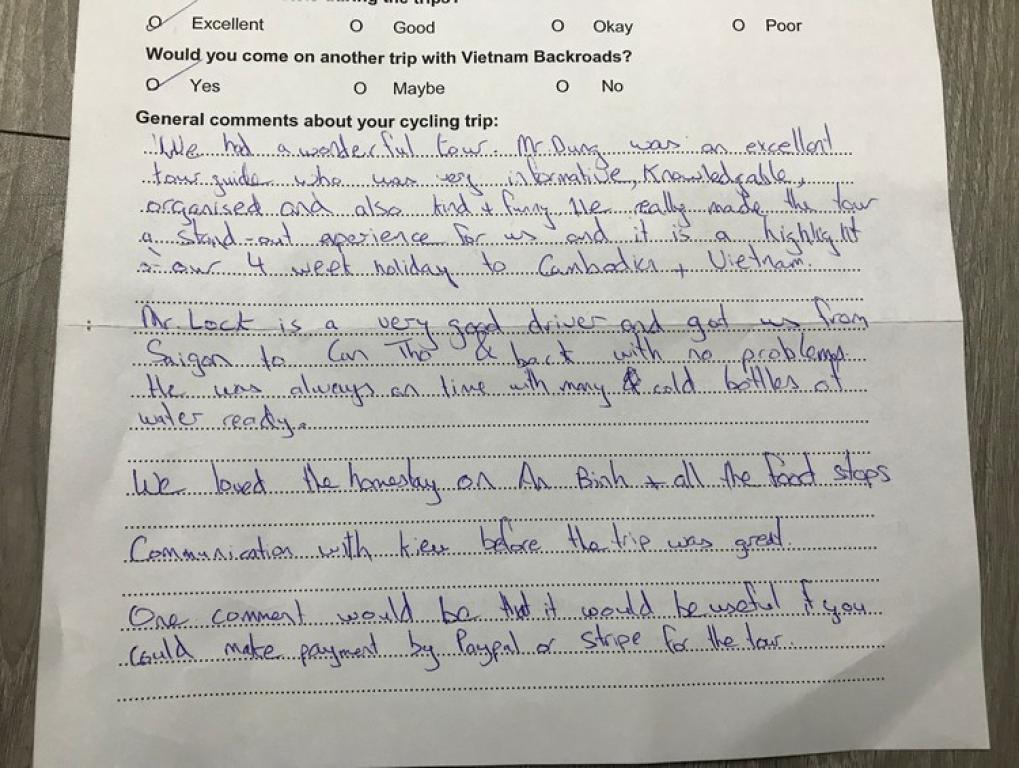 during the trips?
O Excellent O Good O Okay O Poor
Would you come on another trip with Vietnam Backroads?
O Yes O Maybe O No
General comments about your cycling trip:
We had a wonderful tour. Mr. Dung was an excellent
tour guide who was very informative, knowledgable,
organised and also kind + funny. He really made the tour
a stand-out experience for us and it is a highlight
our 4 week holiday to Cambodia + Vietnam.
Mr. Lock is a very good driver and got us from
Saigon to Can Tho & back with no problems.
He was always on time with many cold bottles of
water ready.
We loved the homestay on An Binh + all the food stops
Communication with Kien before the trip was great.
One comment would be that it would be useful if you
could make payment by Paypal or Stripe for the tour.